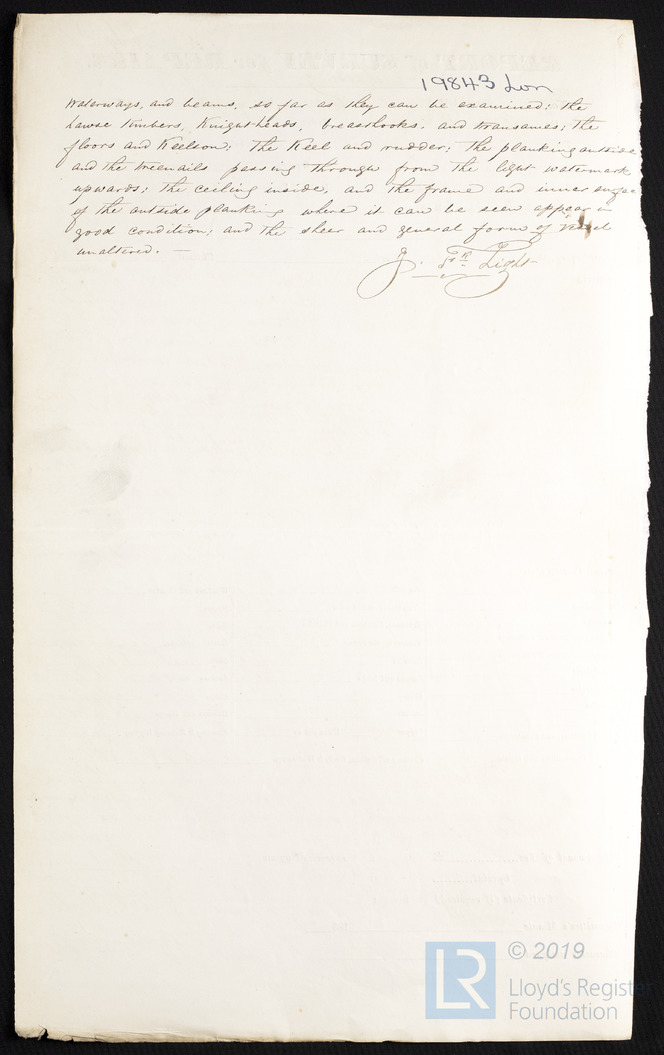 19843 Lon
Waterways, and beams, so far as they can be examined; the
hawse timbers, Knight-heads, breasthooks, and transomes; the
floors and Keelson; the Keel and rudder; the planking outside
and the treenails passing through from the light watermark
upwards; the ceiling inside, and the frame and inner surface
of the outside planking where it can be seen appear in
good condition; and the sheer and general form of Vessel
unaltered. —
J. Light
© 2019
LR
Lloyd's Register
Foundation